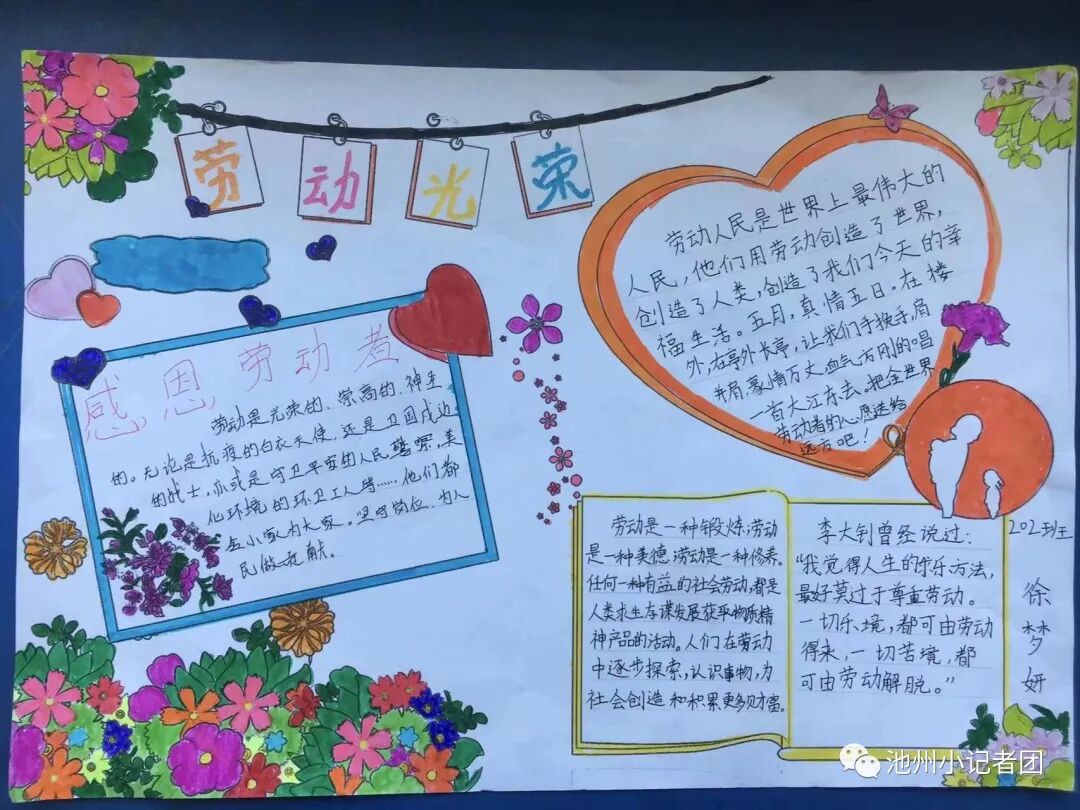 劳动光荣
感恩劳动者
劳动是光荣的、崇高的、神圣
的。无论是抗疫的白衣天使，还是卫国戍边
的战士，亦或是守卫平安的人民警察，美
化环境的环卫工人等……他们都
舍小家为大家。坚守岗位，为人
民做贡献。
劳动人民是世界上最伟大的
人民，他们用劳动创造了世界，
创造了人类，创造了我们今天的幸
福生活。五月，真情五日。在楼
外，在亭外长亭，让我们手挽手，肩
并肩，豪情万丈，血气方刚的唱
一首大江东去。把全世界
劳动者的心愿送给
远方吧！
劳动是一种锻炼，劳动
是一种美德，劳动是一种修养。
任何一种有益的社会劳动，都是
人类求生存谋发展获乎物质精
神产品的活动。人们在劳动
中逐步探索，认识事物，为
社会创造和积累更多财富。
李大钊曾经说过：
“我觉得人生的求乐方法，
最好莫过于尊重劳动。
一切乐境，都可由劳动
得来，一切苦境，都
可由劳动解脱。”
202班
徐梦妍
池州小记者团